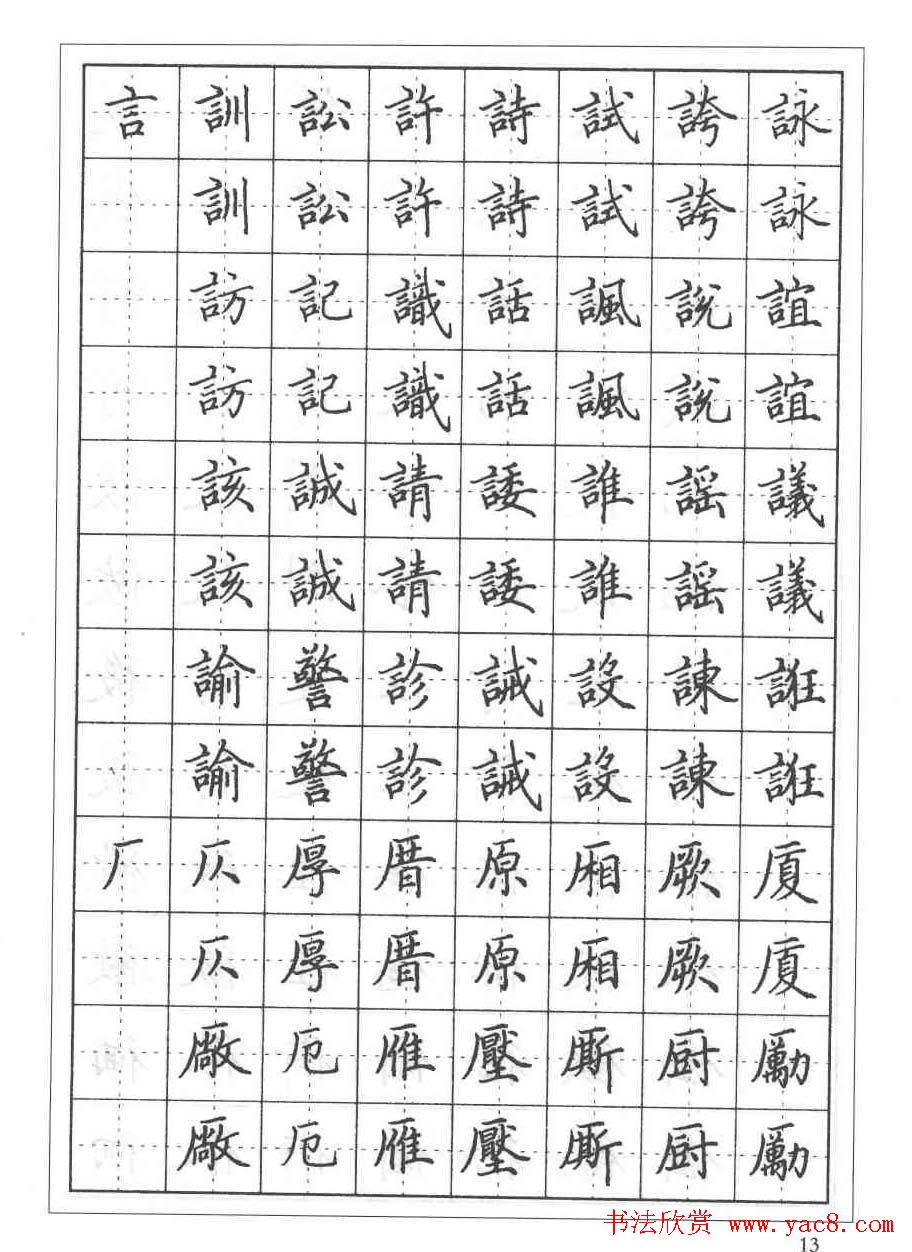 言訓訟許詩試誇詠
訓訟許詩試誇詠
訪記識話諷說誼
訪記識話諷說誼
該誠請諉誰謡議
該誠請諉誰謡議
諭警診誡設諫誑
諭警診誡設諫誑
厂仄厚厝原厢厥厦
仄厚厝原厢厥厦
厰厄雁壓厮厨勵
厰厄雁壓厮厨勵
书法欣赏 www.yac8.com
13